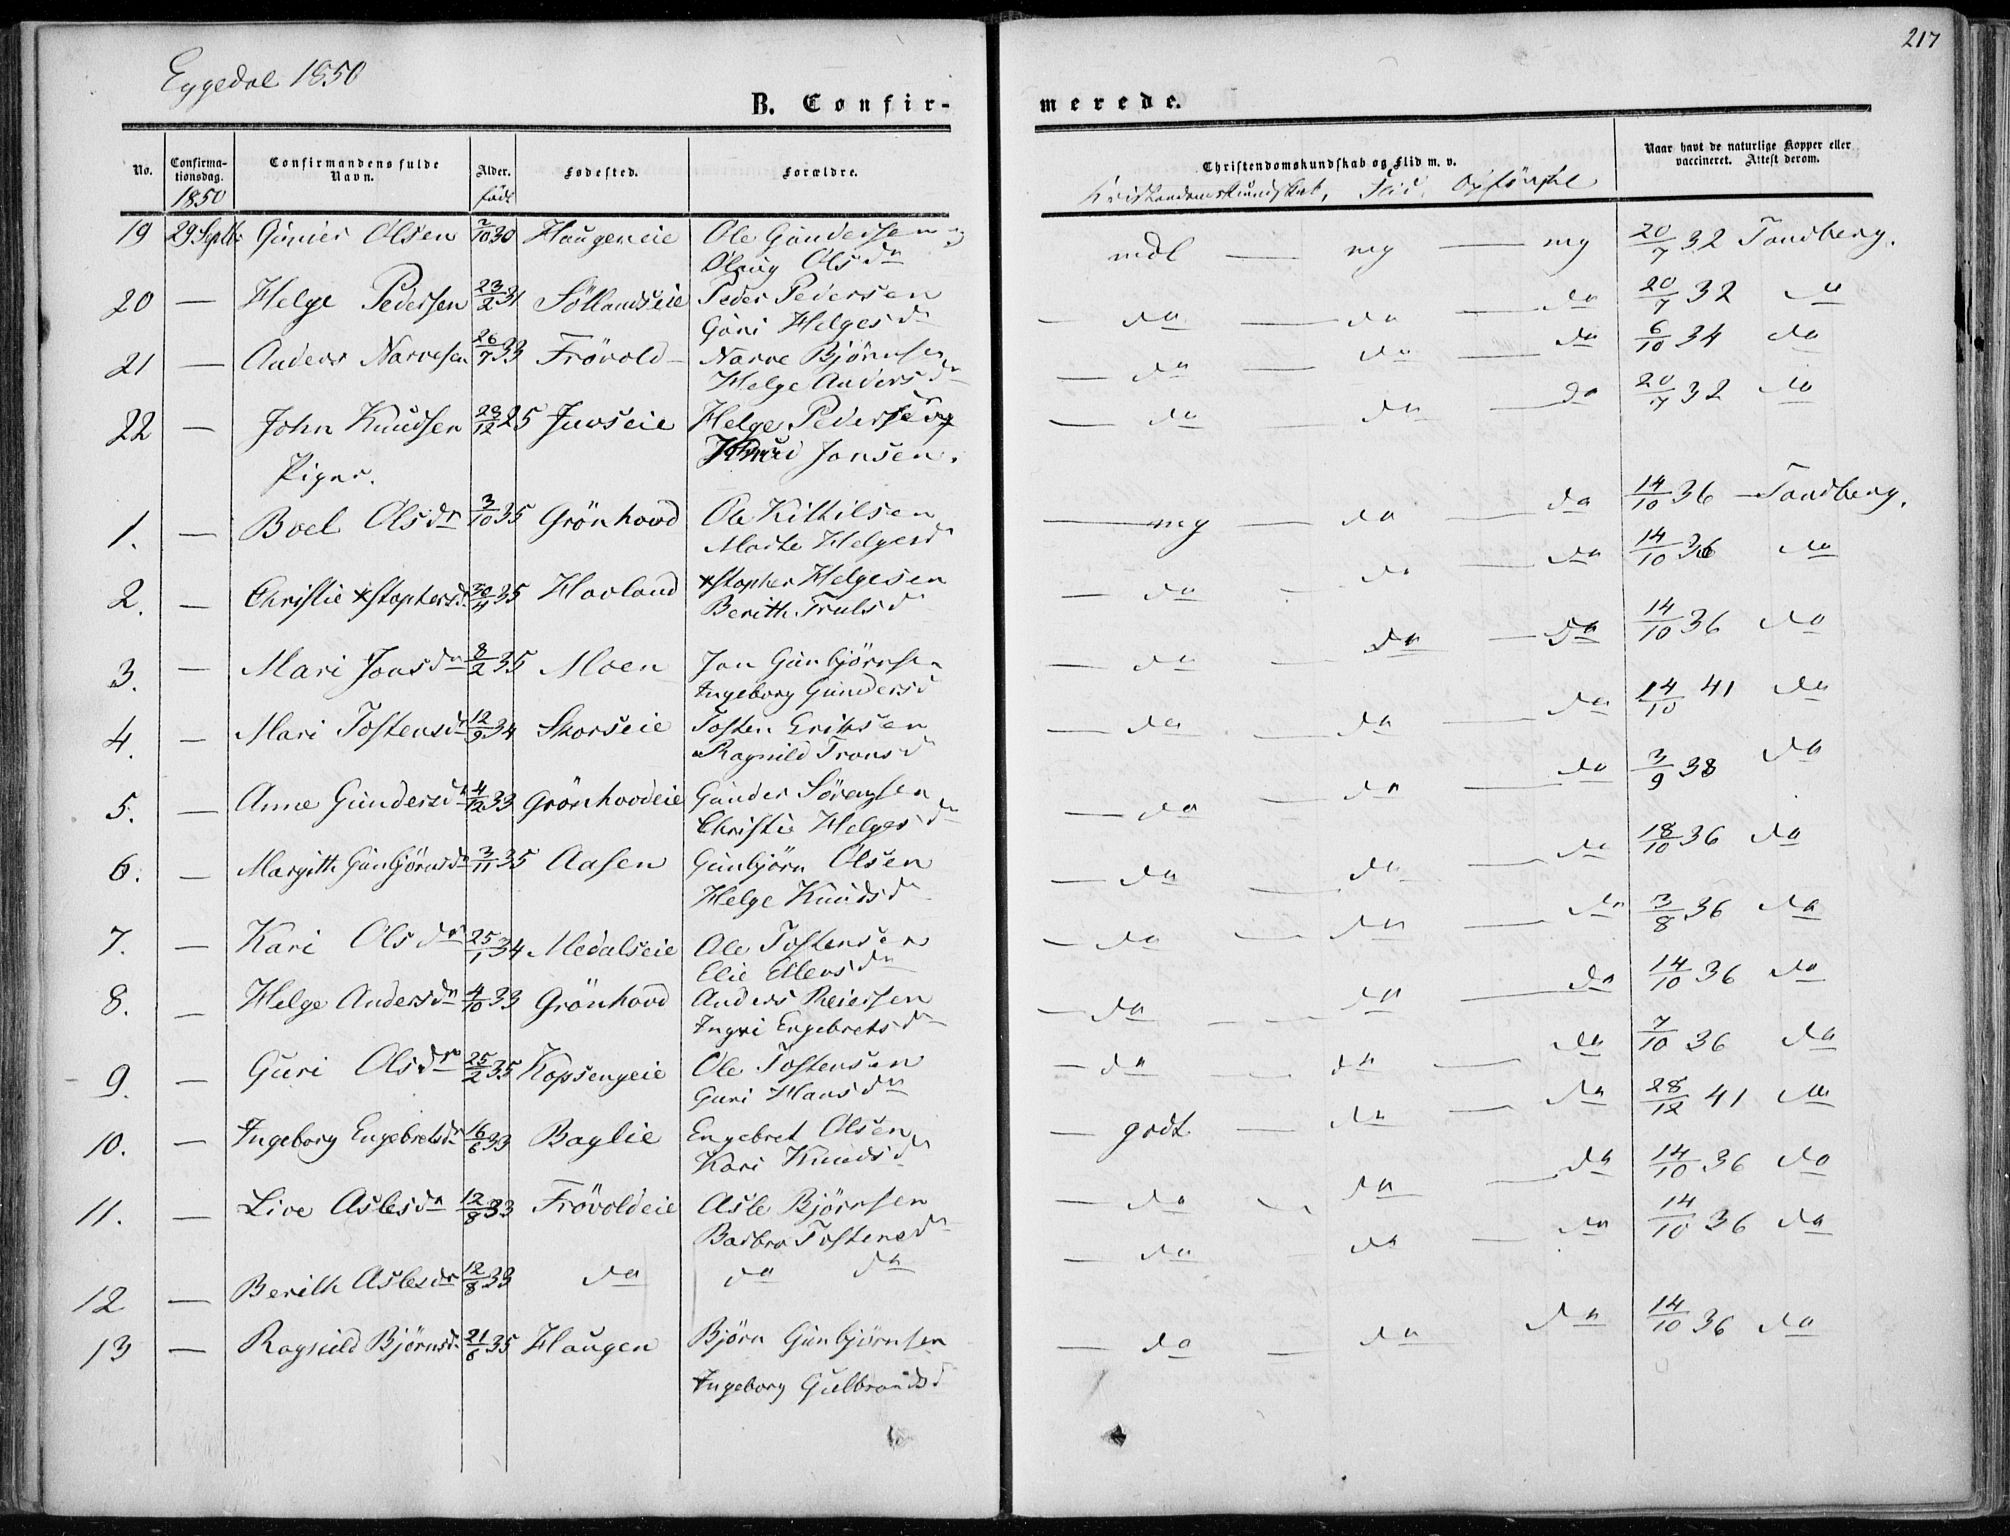 Eggedal 1850
217
B. Confir-
merede.
No. Confirma-tionsdag. Confirmandens fulde Navn. Alder. Fødested. Forældre. Christendomskundskab og Flid m. v. Naar havt de naturlige Kopper eller vaccineret. Attest derom.
1850 født Kristendomskundskab, Flid, Opførsel
19 29 Septbr Gunder Olsen 2/10 30 Haugeneie Ole Gundersen og mdl — mg — mg 20/7 32 Tandberg.
Olaug Olsdr
20 — Helge Pedersen 23/2 31 Söllandseie Peder Pedersen — do — do — do 20/7 32 do
Guri Helgesdr
21 — Anders Narvesen 26/7 33 Frövold Narve Björnsen — do — do — do 6/10 34 do
Helge Andersdr
22 — John Knudsen 29/12 25 Juvseie Helge Pedersdr og — do do — do 20/7 32 do
Knud Jonsen.
Piger.
1. — Boel Olsdr 3/10 35 Grönhovd Ole Kittilsen — mg — do — do 14/10 36 — Tandberg.
Marthe Helgesd
2. — Christie Xstophersdr 30/4 35 Havland Xstopher Helgesen — do - do — do 14/10 36 do
Berith Trulsd
3. — Mari Jonsdr 8/2 35 Moen Jon Gunbjörnsen — do — do — do 14/10 36 do
Ingeborg Gundersd
4. — Mari Tostensdr 12/9 34 Skorseie Tosten Eriksen — do — do — do 14/10 41 do
Ragnild Tronsd
5. — Anne Gundersdr 4/12 33 Grönhovdeie Gunder Sörensen — do — do — do 3/9 38 do
Christie Helgesdr
6. — Margith Gunbjörnsdr 3/11 35 Aasen Gunbjörn Olsen — do — do — do 18/10 36 do
Helge Knudsdr
7. — Kari Olsdr 25/1 34 Medalseie Ole Tostensen — do — do — do 3/8 36 do
Elie Ellensdr
8. — Helge Andersdr 4/10 33 Grönhovd Anders Reiersen — do — do — do 14/10 36 do
Ingri Engebretsdr
9. — Guri Olsdr 25/2 35 Kopsengeie Ole Tostensen — do do — do 7/10 36 do
Guri Hansdr
10. — Ingeborg Engebretsdr 16/6 33 Baglie Engebret Olsen — godt — do — do 28/12 41 do
Kari Knudsdr
11. — Live Aslesdr 12/8 33 Frövoldeie Asle Björnsen — do — do — do 14/10 36 do
Barbro Tostensdr
12 — Berith Aslesdr 12/8 33 do do do — do — do — do 14/10 36 do
13 — Ragnild Björnsdr 21/6 35 Haugen Björn Gunbjörnsen — do — do do 14/10 36 do
Ingeborg Gulbrandsd